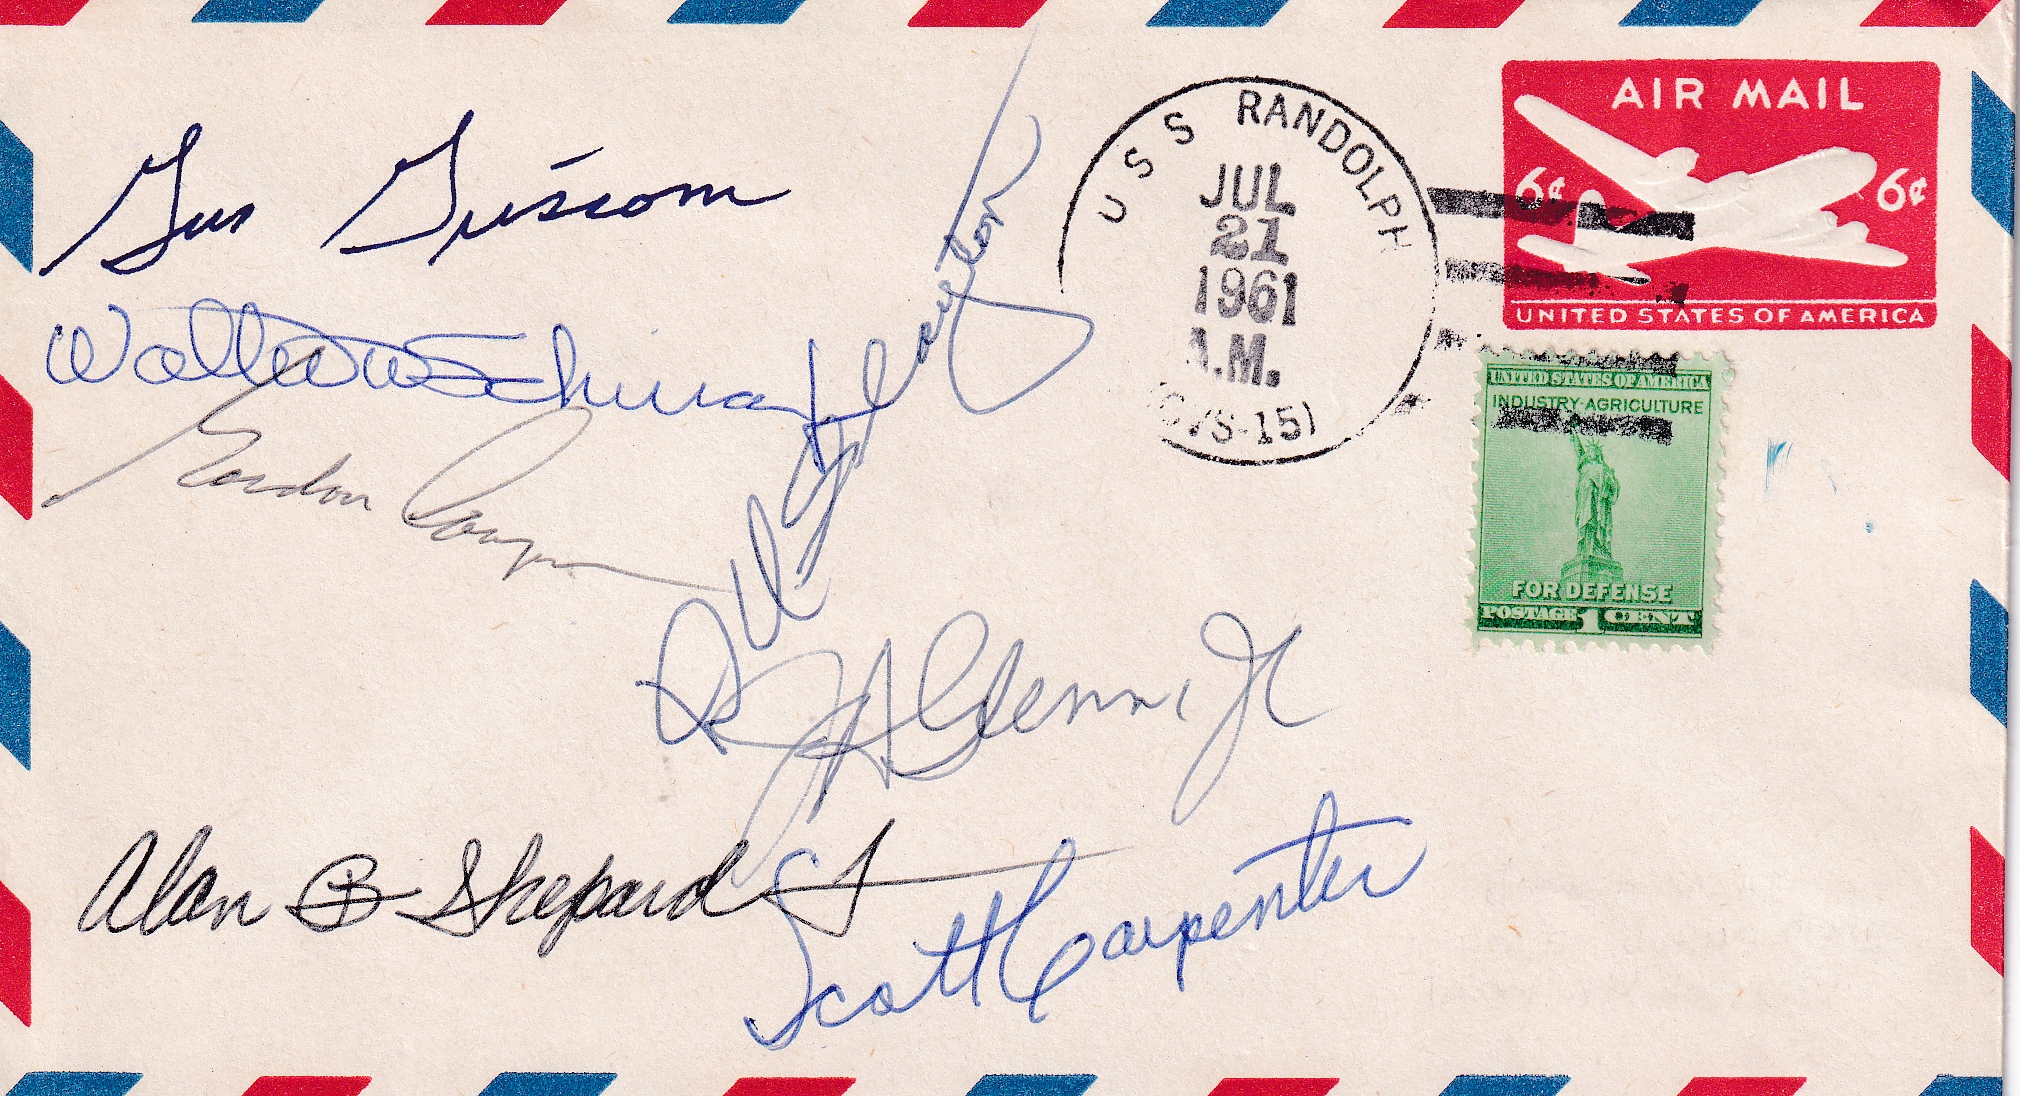 Gus Grissom
Walter M Schirra Jr
Gordon Cooper
D K Slayton
JH Glenn Jr
Alan B Shepard Jr
Scott Carpenter
USS RANDOLPH
JUL
21
1961
A.M.
(CVS-15)
AIR MAIL
6¢ 6¢
UNITED STATES OF AMERICA
UNITED STATES OF AMERICA
INDUSTRY·AGRICULTURE
FOR DEFENSE
POSTAGE 1 CENT